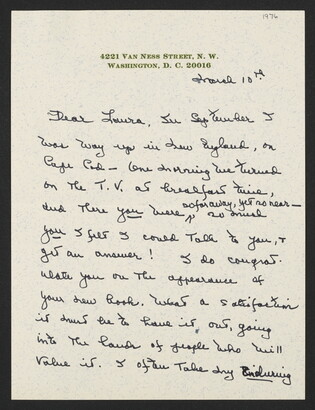 1976
4221 Van Ness Street, N. W.
Washington, D. C. 20016
March 10th
Dear Laura, In September I
was way up in New England, on
Cape Cod — One morning we turned
on the T. V. at breakfast time,
so far away, yet so near —
and there you were, so much
you I felt I could talk to you, +
get an answer! I do congrat-
ulate you on the appearance of
your new book. What a satisfaction
it must be to have it out, going
into the hands of people who will
value it. I often take my Enduring